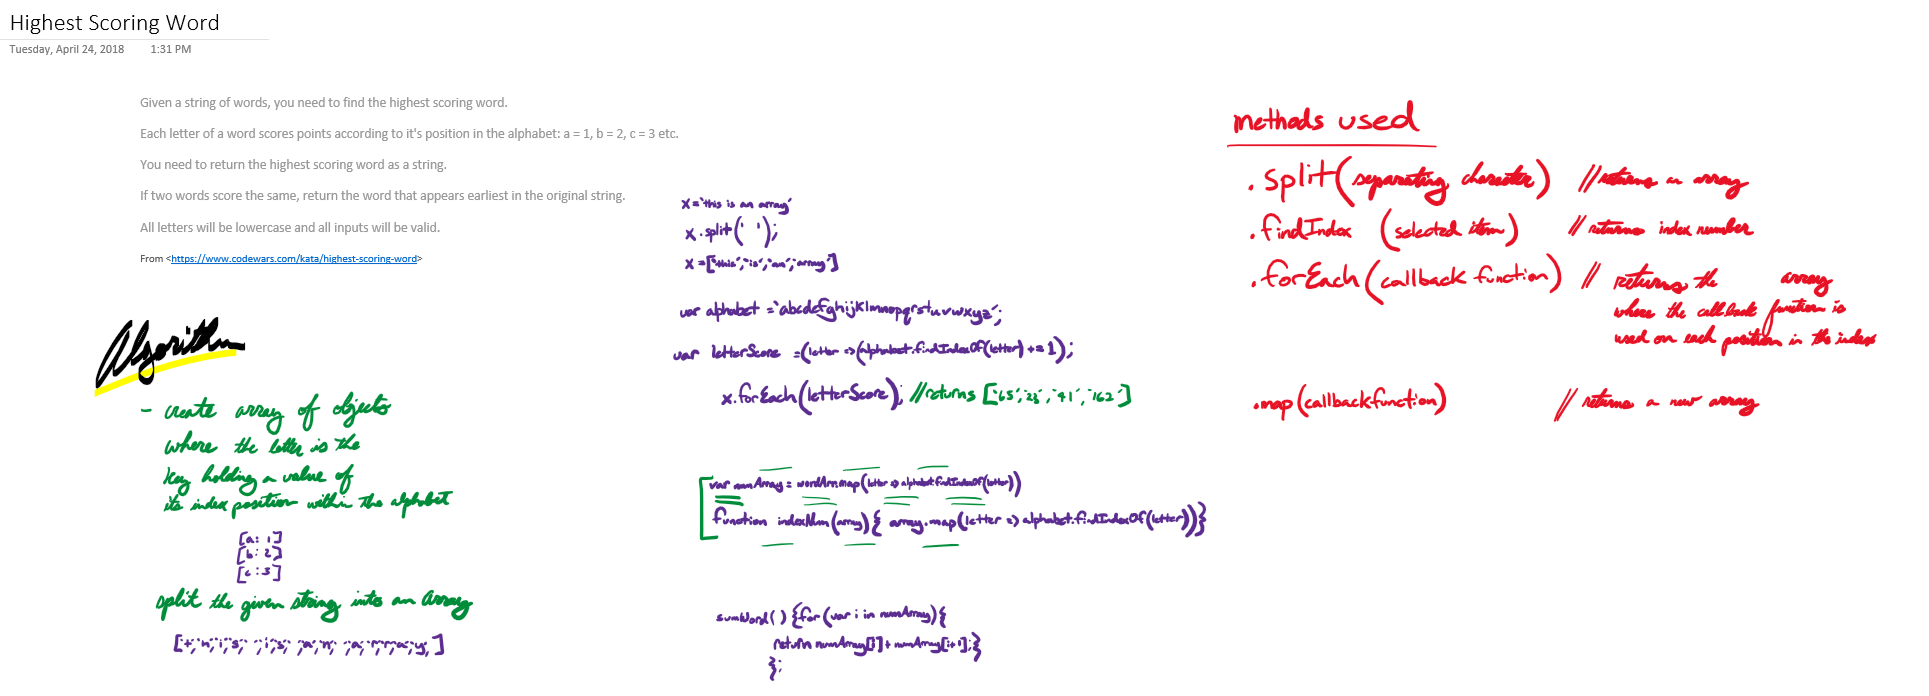 Highest Scoring Word
Tuesday, April 24, 2018 1:31 PM
Given a string of words, you need to find the highest scoring word.
Each letter of a word scores points according to it's position in the alphabet: a = 1, b = 2, c = 3 etc.
You need to return the highest scoring word as a string.
If two words score the same, return the word that appears earliest in the original string.
All letters will be lowercase and all inputs will be valid.
From <https://www.codewars.com/kata/highest-scoring-word>
Algorithm
- create array of objects
where the letter is the
key holding a value of
its index position within the alphabet
[a: 1]
[b: 2]
[c: 3]
split the given string into an array
x = 'this is an array'
x.split(' ');
x = ['this','is','an','array']
var alphabet = 'abcdefghijklmnopqrstuvwxyz';
var letterScore = (letter => (alphabet.findIndexOf(letter) += 1);
x.forEach(letterScore); //returns
var numArray = wordArr.map(letter => alphabet.findIndexOf(letter))
function indexNum(array){ array.map(letter => alphabet.findIndexOf(letter))}
sumWord() {for (var i in numArray){
return numArray[i] + numArray[i+1];}
};
methods used
.split(separating character) //returns an array
.findIndex (selected item) //returns index number
.forEach(callback function) // returns the array
where the callback function is
used on each position in the index
.map(callbackfunction) // returns a new array